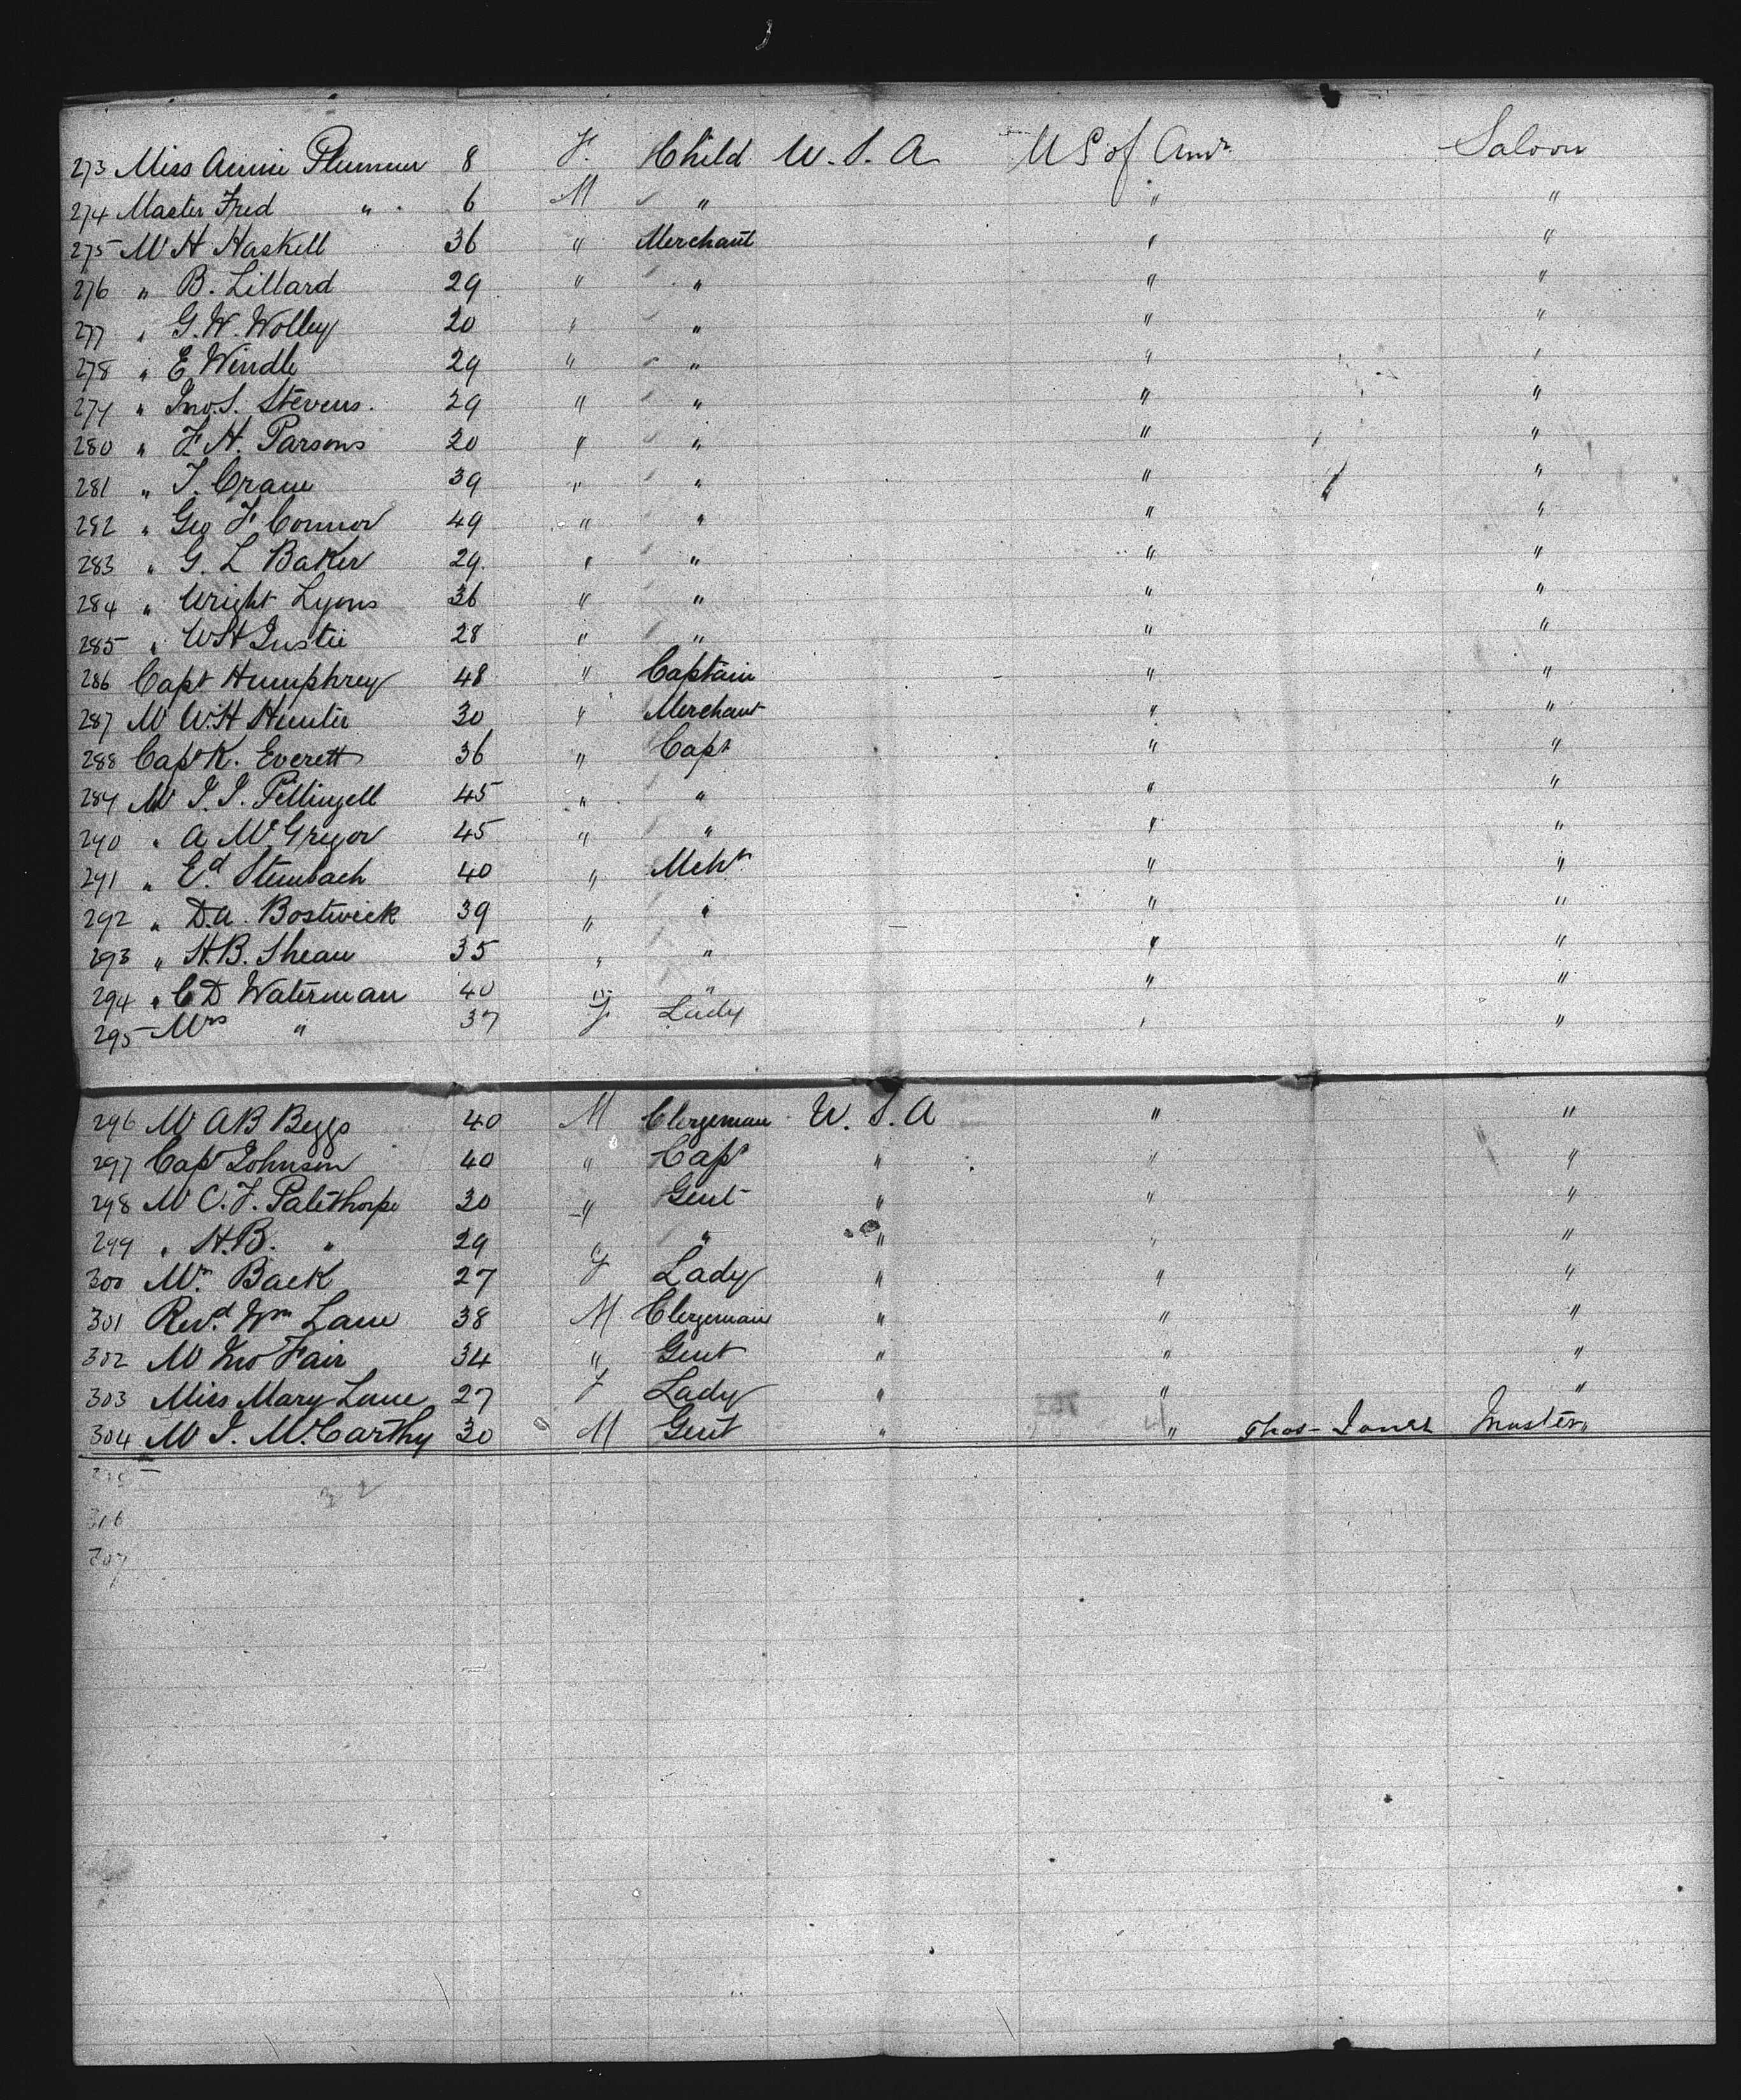 273 Miss Annie Plummer 8 F. Child U.S.A US of Amr. Saloon
274 Master Fred " 6 M " " "
275 Mr H Haskell 36 " Merchant " "
276 " B. Lillard 29 " " " "
277 " G.W. Wolley 20 " " " "
278 " E Windle 29 " " " "
279 " Jno. S. Stevens. 29 " " " "
280 " F.H. Parsons 20 " " " "
281 " J. Crane 39 " " " "
282 " Geo F Connor 49 " " " "
283 " G. L Baker 29. " " " "
284 " Wright Lyons 36 " " " "
285 " WH 28 " " " "
286 Capt Humphrey 48 " Captain " "
287 Mr W.H Hunter 30 " Merchant " "
288 Capt K. Everett 36 " Capt " "
289 Mr J. J. Pettingell 45 " " " "
290 " A McGregor 45 " " " "
291 " Ed. Steinbach 40 " Mcht " "
292 " D.A. Bostwick 39 " " " "
293 " H.B. Shean 35 " " " "
294 " C D Waterman 40 " " " "
295 Mrs " 37 F Lady " "
296 Mr AB Beggs 40 M Clergeman U.S.A " "
297 Capt Johnson 40 " Capt " " "
298 Mr C. F. Palethorpe 30 " Gent " " "
299 " H.B. " 29 " " " " "
300 Mrs Back 27 F Lady " " "
301 Revd. Wm Lane 38 M Clergeman " " "
302 Mr Jno Fair 34 " Gent " " "
303 Miss Mary Lane 27 F Lady " " "
304 Mr J. McCarthy 30 M Gent " " Thos Jones Master "
305
32
306
307